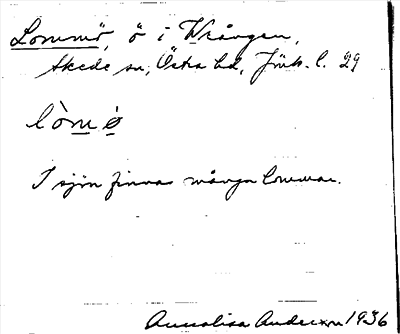 Lommö, ö i Wrången,
Skede sn, Östra hd, Jönk. l. 29
lòmø
I sjön finnas många lommar.
Annalisa Anderson 1936